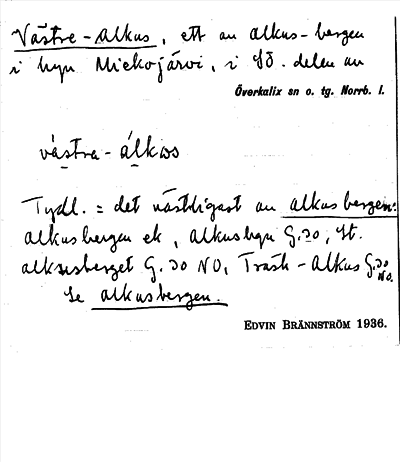 Västre-alkus, ett av alkus-bergen
i byn Miekojärvi, i SÖ. delen av
Överkalix sn o. tg. Norrb. l.
västra-álkus
Tydl. = det västligast av alkusbergen:
alkusbergen ek, alkusbyn G.30, st.
alkusberget G.30 NO, Träsk-alkus G.30
NO.
Se alkusbergen.
EDVIN BRÄNNSTRÖM 1936.